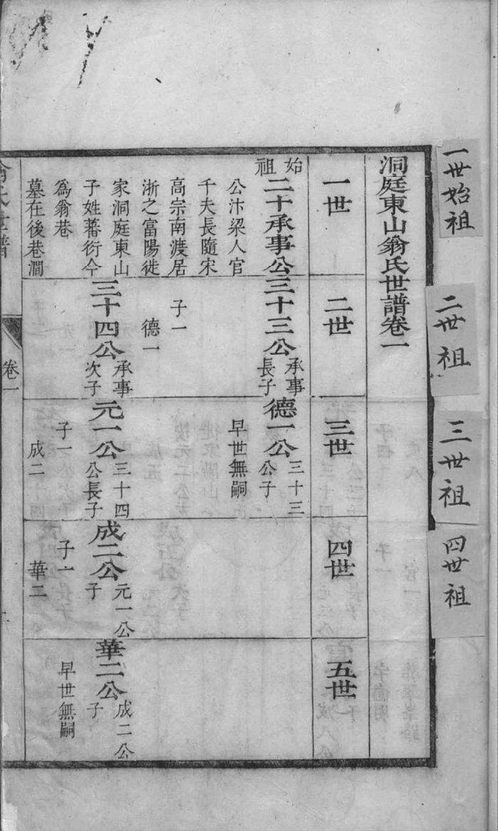 洞庭東山翁氏世譜卷一
一世
二世
三世
四世
五世
始祖
二十承事公
公汴梁人官
千夫長隨宋
高宗南渡居
浙之富陽徙
家洞庭東山
子姓蕃衍今
爲翁巷
墓在後巷澗
三十三公
承事
長子
子一
德一
三十四公
承事
次子
德一公
三十三
公子
早世無嗣
元一公
三十四
公長子
子一
成二
成二公
元一公
子
子一
華二
華二公
成二公
子
早世無嗣
卷一
一世始祖
二世祖
三世祖
四世祖